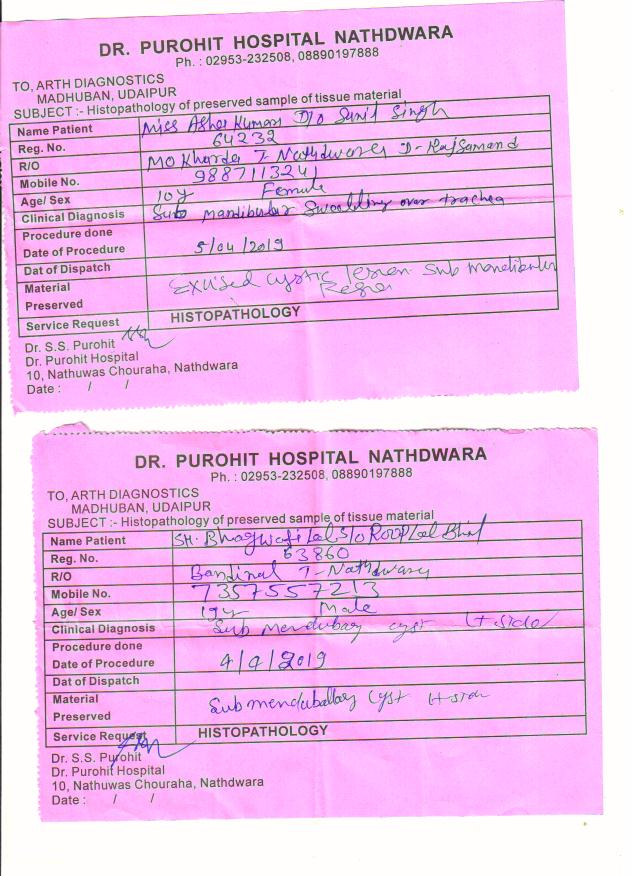 DR. PUROHIT HOSPITAL NATHDWARA
Ph. : 02953-232508, 08890197888
TO, ARTH DIAGNOSTICS
MADHUBAN, UDAIPUR
SUBJECT :- Histopathology of preserved sample of tissue material
Name Patient Miss Asha Kumari D/o Sunil Singh
Reg. No. 64232
R/O Mo Kharda T. Nathdwara D- Rajsamand
Mobile No. 988711324
Age/ Sex 10y Female
Clinical Diagnosis Sub mandibular Swelling over trachea
Procedure done
Date of Procedure 5/04/2019
Dat of Dispatch
Material Excised cystic lesion Sub
Preserved
Service Request HISTOPATHOLOGY
Dr. S.S. Purohit
Dr. Purohit Hospital
10, Nathuwas Chouraha, Nathdwara
Date : / /
DR. PUROHIT HOSPITAL NATHDWARA
Ph. : 02953-232508, 08890197888
TO, ARTH DIAGNOSTICS
MADHUBAN, UDAIPUR
SUBJECT :- Histopathology of preserved sample of tissue material
Name Patient SH. S/o Lal
Reg. No. 63860
R/O T- Nathdwara
Mobile No. 7357557213
Age/ Sex Male
Clinical Diagnosis Sub cyst side
Procedure done
Date of Procedure 4/4/2019
Dat of Dispatch
Material Sub cyst
Preserved
Service Request HISTOPATHOLOGY
Dr. S.S. Purohit
Dr. Purohit Hospital
10, Nathuwas Chouraha, Nathdwara
Date : / /